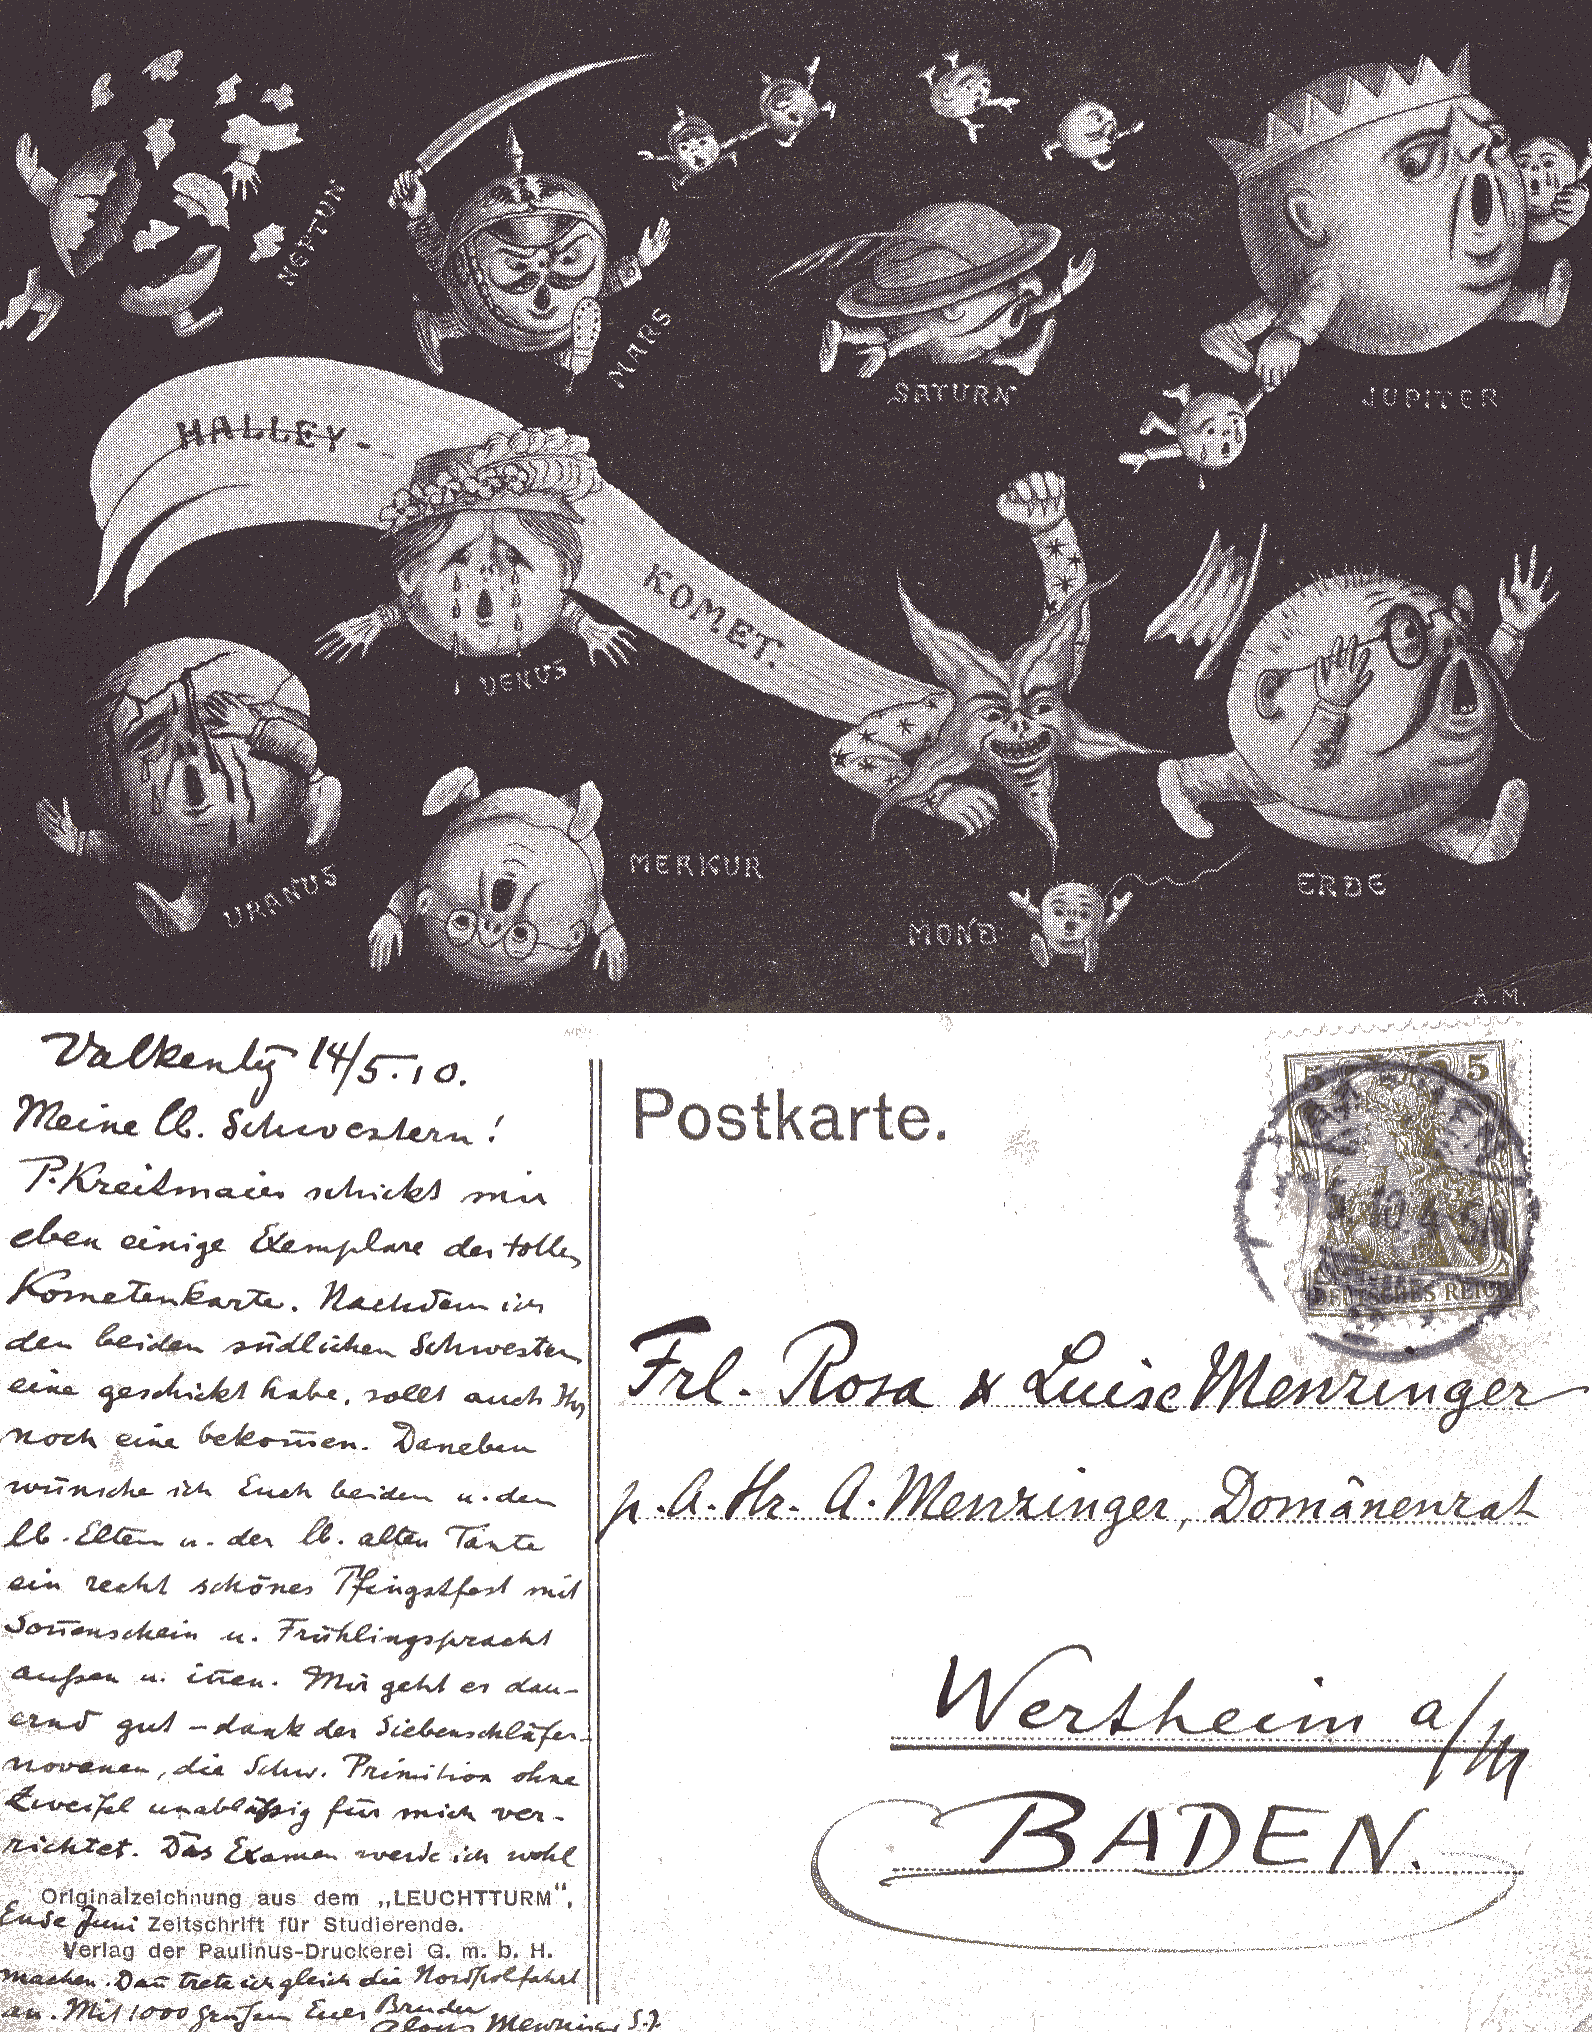 NEPTUN
MARS
SATURN
JUPITER
HALLEY-
KOMET.
VENUS
URANUS
MERKUR
MOND
ERDE
A.M.
Valkenbg 14/5.10.
Meine lb. Schwestern!
P. Kreitmaier schickt mir
eben einige Exemplare der tollen
Kometenkarte. Nachdem ich
den beiden südlichen Schwestern
eine geschickt habe, sollt auch Ihr
noch eine bekom̅en. Daneben
wünsche ich Euch beiden u. den
lb. Eltern u. der lb. alten Tante
ein recht schönes Pfingstfest mit
Son̅enschein u. Frühlingspracht
außen u. in̅en. Mir geht es dau-
ernd gut – dank der Siebenschläfer-
novenen, die Schw. Primitiva ohne
Zweifel unabläßig für mich ver-
richtet. Das Examen werde ich wohl
Originalzeichnung aus dem „LEUCHTTURM",
Ende Juni Zeitschrift für Studierende.
Verlag der Paulinus-Druckerei G. m. b. H.
machen. Dan̅ trete ich gleich die Nordpolfahrt
an. Mit 1000 Grüßen Euer Bruder
Alois Menzinger S.J.
Postkarte.
5 5
10.4-5N
DEUTSCHES REICH
Frl. Rosa & Luise Menzinger
p. A. Hr. A. Menzinger, Domänenrat
Wertheim a/M
BADEN.